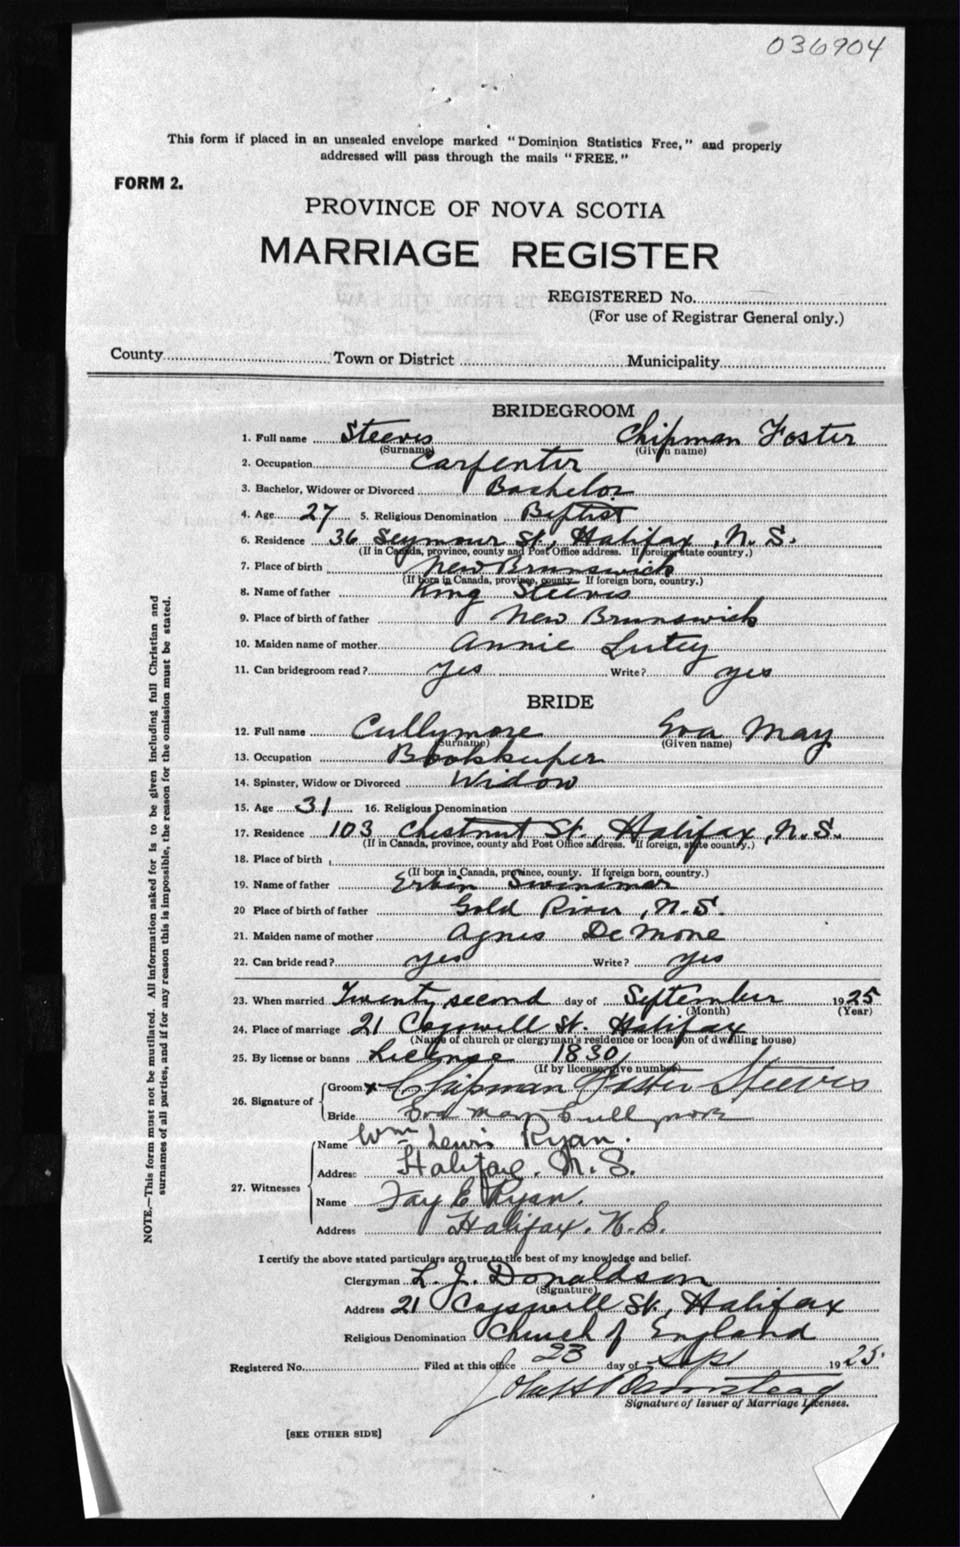 036904
This form if placed in an unsealed envelope marked "Dominion Statistics Free," and properly
addressed will pass through the mails "FREE."
FORM 2.
PROVINCE OF NOVA SCOTIA
MARRIAGE REGISTER
REGISTERED No.
(For use of Registrar General only.)
County Town or District Municipality
BRIDEGROOM
1. Full name Steeves Chipman Foster
(Surname) (Given name)
2. Occupation Carpenter
3. Bachelor, Widower or Divorced Bachelor
4. Age 27 5. Religious Denomination Baptist
6. Residence 36 Seymour St, Halifax, N.S.
(If in Canada, province, county and Post Office address. If foreign state country.)
7. Place of birth New Brunswick
(If born in Canada, province, county. If foreign born, country.)
8. Name of father King Steeves
9. Place of birth of father New Brunswick
10. Maiden name of mother Annie Lutey
11. Can bridegroom read? Yes Write? yes
BRIDE
12. Full name Cullymore Eva May
(Surname) (Given name)
13. Occupation Bookkeeper
14. Spinster, Widow or Divorced Widow
15. Age 31 16. Religious Denomination
17. Residence 103 Chestnut St., Halifax, N.S.
(If in Canada, province, county and Post Office address. If foreign, state country.)
18. Place of birth
(If born in Canada, province, county. If foreign born, country.)
19. Name of father Swinimer
20 Place of birth of father Gold River, N.S.
21. Maiden name of mother Agnes DeMone
22. Can bride read? yes Write? yes
23. When married Twenty second day of September 1925
(Month) (Year)
24. Place of marriage 21 Cogswell St. Halifax
(Name of church or clergyman's residence or location of dwelling house)
25. By license or banns License 1830
(If by license, give number)
26. Signature of Groom x Chipman Foster Steeves
Bride Eva May Cullymore
27. Witnesses Name Wm Lewis Ryan.
Address Halifax. N.S.
Name Fay E Ryan.
Address Halifax. N.S.
I certify the above stated particulars are true to the best of my knowledge and belief.
Clergyman L. J. Donaldson
(Signature)
Address 21 Cogswell St., Halifax
Religious Denomination Church of England
Registered No. Filed at this office 23 day of Sept 1925.
Signature of Issuer of Marriage Licenses.
[SEE OTHER SIDE]
NOTE.—This form must not be mutilated. All information asked for is to be given including full Christian and
surnames of all parties, and if for any reason this is impossible, the reason for the omission must be stated.